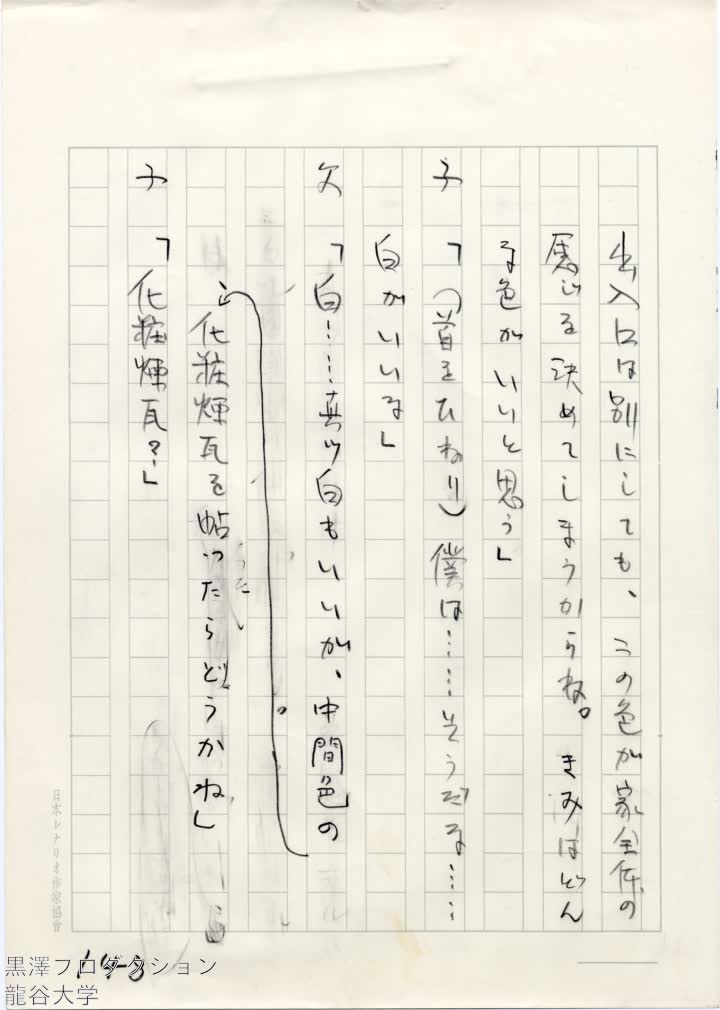 出入口は別にしても、この色が家全体の
感じを決めてしまうからね。きみはどん
な色がいいと思う」
子「(首をひねり)僕は……そうだな……
白がいいな」
父「白……真ッ白もいいが、中間色の
化粧煉瓦を帖ったらどうかね」
子「化粧煉瓦?」
日本シナリオ作家協會
黒澤プロダクション
龍谷大学